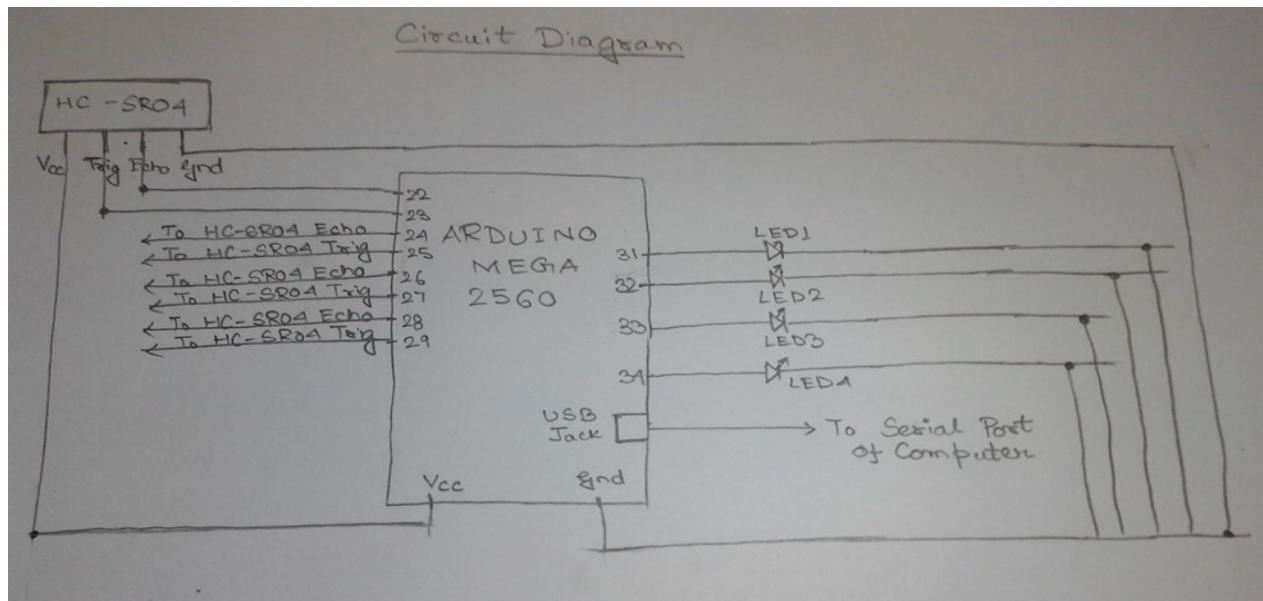 Circuit Diagram
HC-SR04
Vcc Trig Echo Gnd
22
23
To HC-SR04 Echo 24
To HC-SR04 Trig 25
To HC-SR04 Echo 26
To HC-SR04 Trig 27
To HC-SR04 Echo 28
To HC-SR04 Trig 29
ARDUINO
MEGA
2560
31
32
33
34
LED1
LED2
LED3
LED4
USB
Jack
To Serial Port
of Computer
Vcc
Gnd